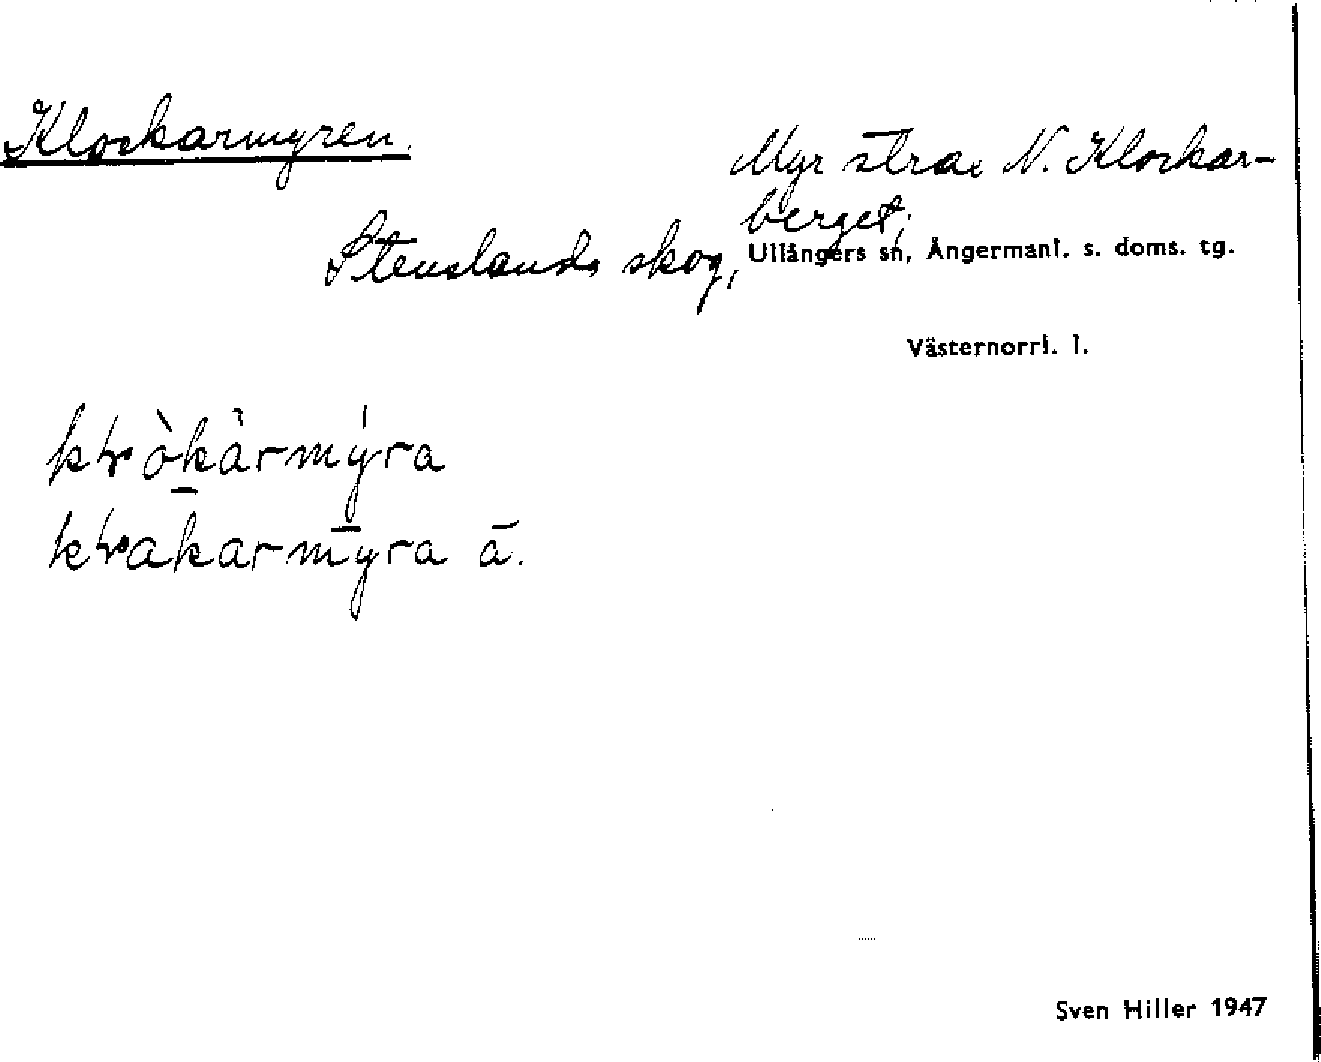 Klockarmyren.
Myr strax N. Klockar-
berget;
Stenslands skog, Ullångers sn, Ångermanl. s. doms. tg.
Västernorrl. l.
Sven Hiller 1947